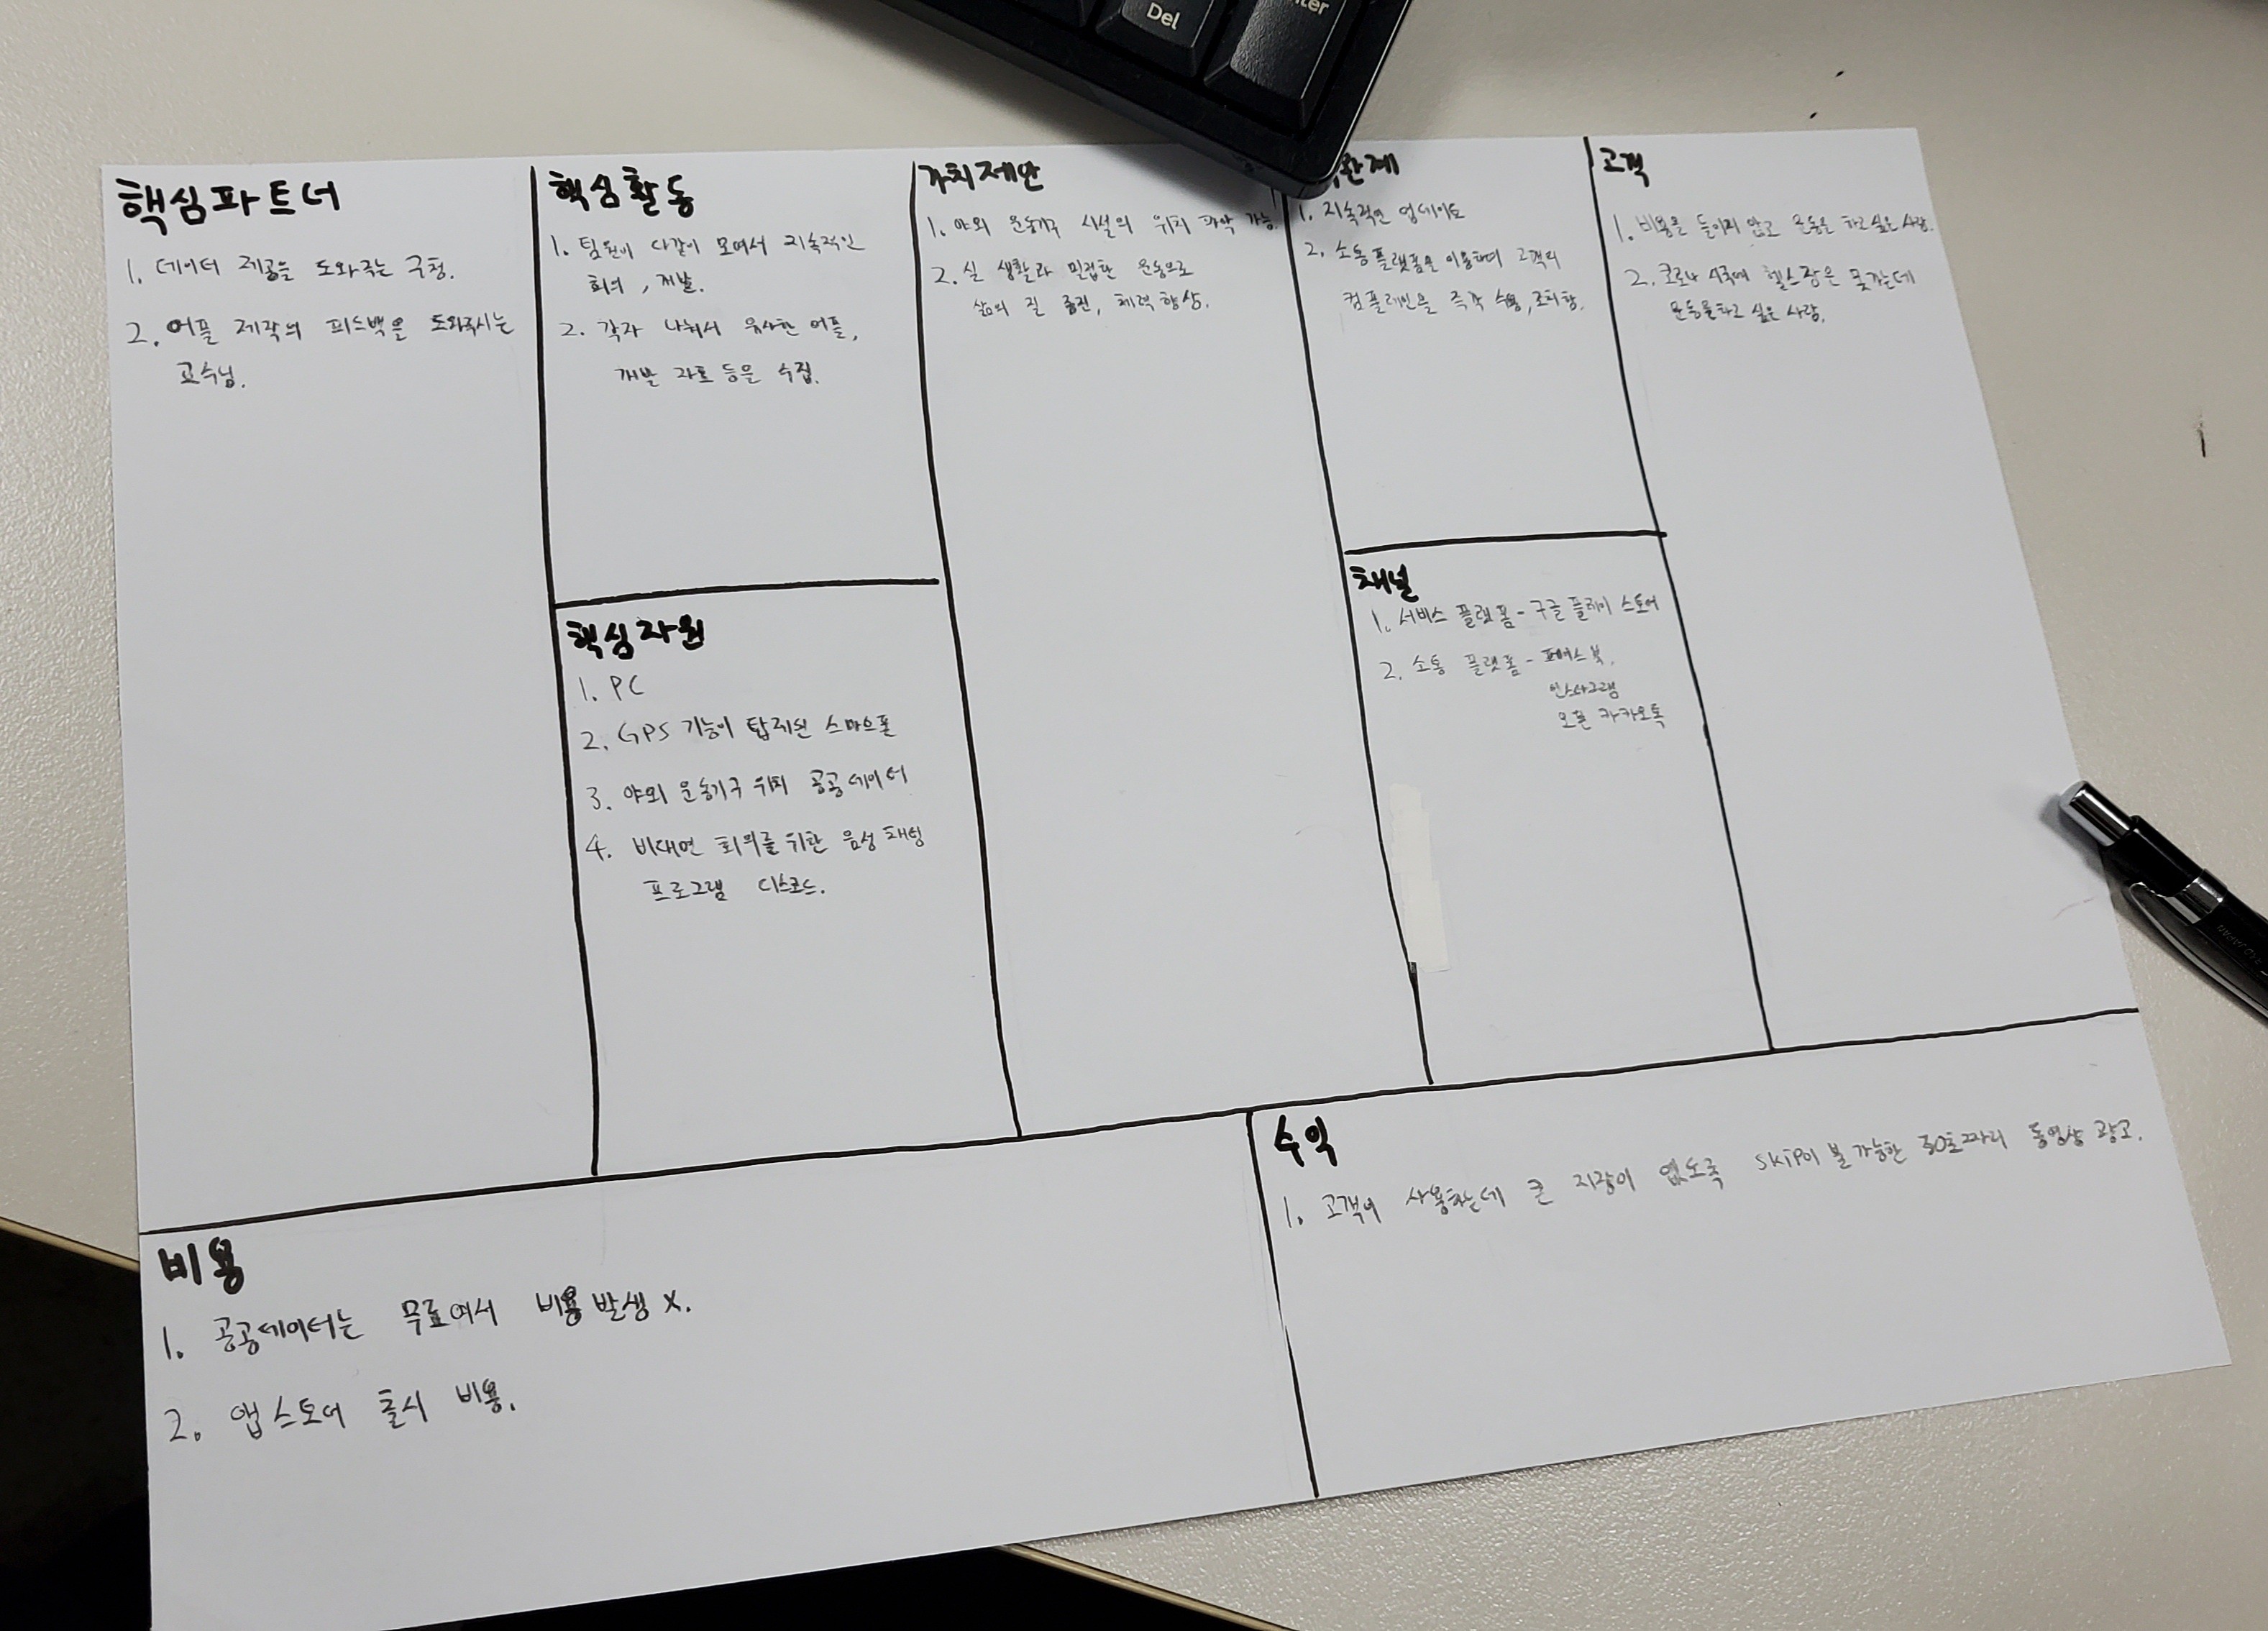 Del
핵심파트너
1. 데이터 제공을 도와주는 구청.
2. 어플 제작의 피드백을 도와주시는
교수님.
핵심활동
1. 팀원이 다같이 모여서 지속적인
회의, 개발.
2. 각자 나눠서 유사한 어플,
개발 자료 등을 수집.
핵심자원
1. PC
2. GPS 기능이 탑재된 스마트폰
3. 야외 운동기구 위치 공공데이터
4. 비대면 회의를 위한 음성 채팅
프로그램 디스코드.
가치제안
1. 야외 운동기구 시설의 위치 파악 가능.
2. 실 생활과 밀접한 운동으로
삶의 질 증진, 체력 향상.
관계
1. 지속적인 업데이트
2. 소통플랫폼을 이용하여 고객의
컴플레인을 즉각 수용, 조치함.
채널
1. 서비스 플랫폼 - 구글 플레이 스토어
2. 소통 플랫폼 - 페이스북,
인스타그램
오픈 카카오톡
고객
1. 비용을 들이지 않고 운동을 하고싶은 사람.
2. 코로나 시국에 헬스장은 못가는데
운동을하고 싶은 사람.
비용
1. 공공데이터는 무료여서 비용발생 X.
2. 앱스토어 출시 비용.
수익
1. 고객이 사용하는데 큰 지장이 없도록 skip이 불가능한 30초짜리 동영상 광고.